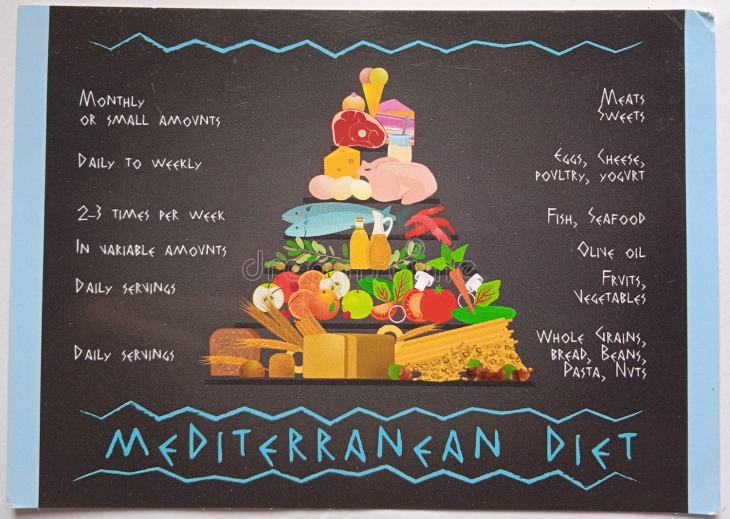 Monthly
or small amovnts
Meats
Sweets
Daily to weekly
Eggs, Cheese,
povltry, yogvrt
2-3 times per week
Fish, Seafood
In variable amovnts
Olive oil
Daily servings
Frvits,
Vegetables
Daily servings
Whole Grains,
bread, Beans,
Pasta, Nvts
Mediterranean Diet
dreamstime